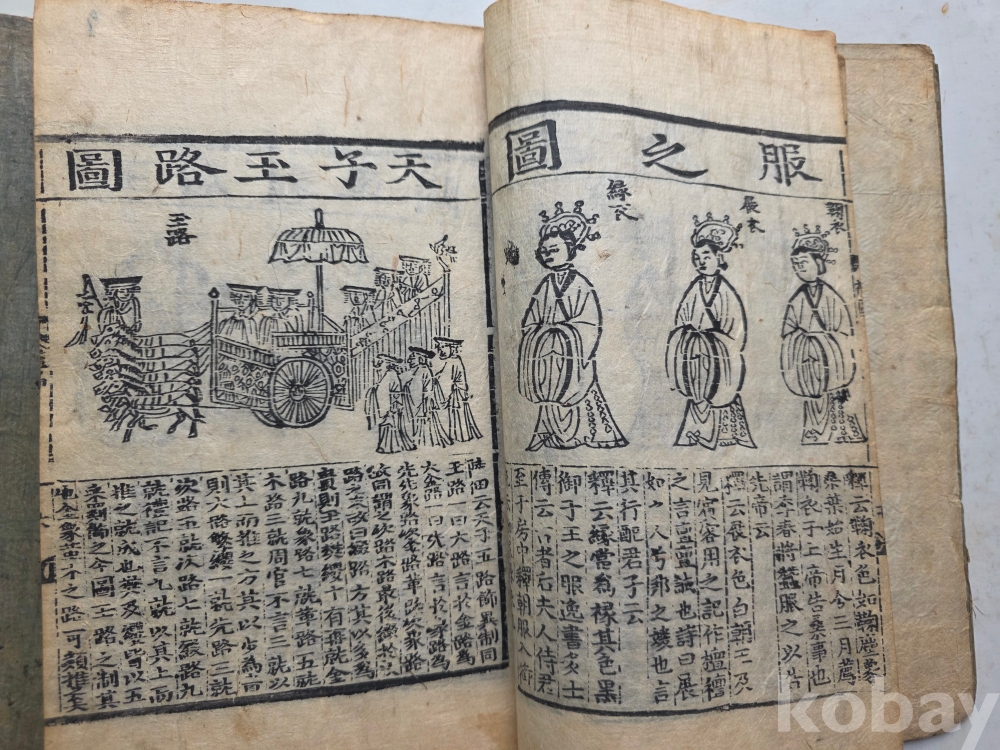 服之圖
鞠衣
展衣
緣衣
釋云鞠衣色如鞠塵象
桑葉始生月令三月薦
鞠衣于上帝告桑事也
謂季春將蠶服之以告
先帝云
釋云展衣色白朝王及
見賓客用之記作襢襢
之言亶亶誠也詩曰展
如之人兮邦之媛也言
其行配君子云
釋云緣當為褖其色黑
御于王之服逸書大士
傳云古者右夫人侍君
至于房中釋朝服入御
天子玉路圖
玉路
陸佃云天子五路飾異制同
玉路一曰大路言於金路為
大金路一曰綴路言於路為
先象路次金路革路次象路
次木路最後綴於
路之末故曰綴路方其以多為
貴則玉路樊纓十有再就金
路九就象路七就革路五就
木路三就周官不言三就以
其上而推之方其以少為貴
則大路繁纓一就先路三就
次路五就次路七就綴路九
就禮記不言九就以其上而
推之就成也樊及纓皆以五
采罽飾之今圖玉路之制其
他金象革木之路可類推矣
kobay